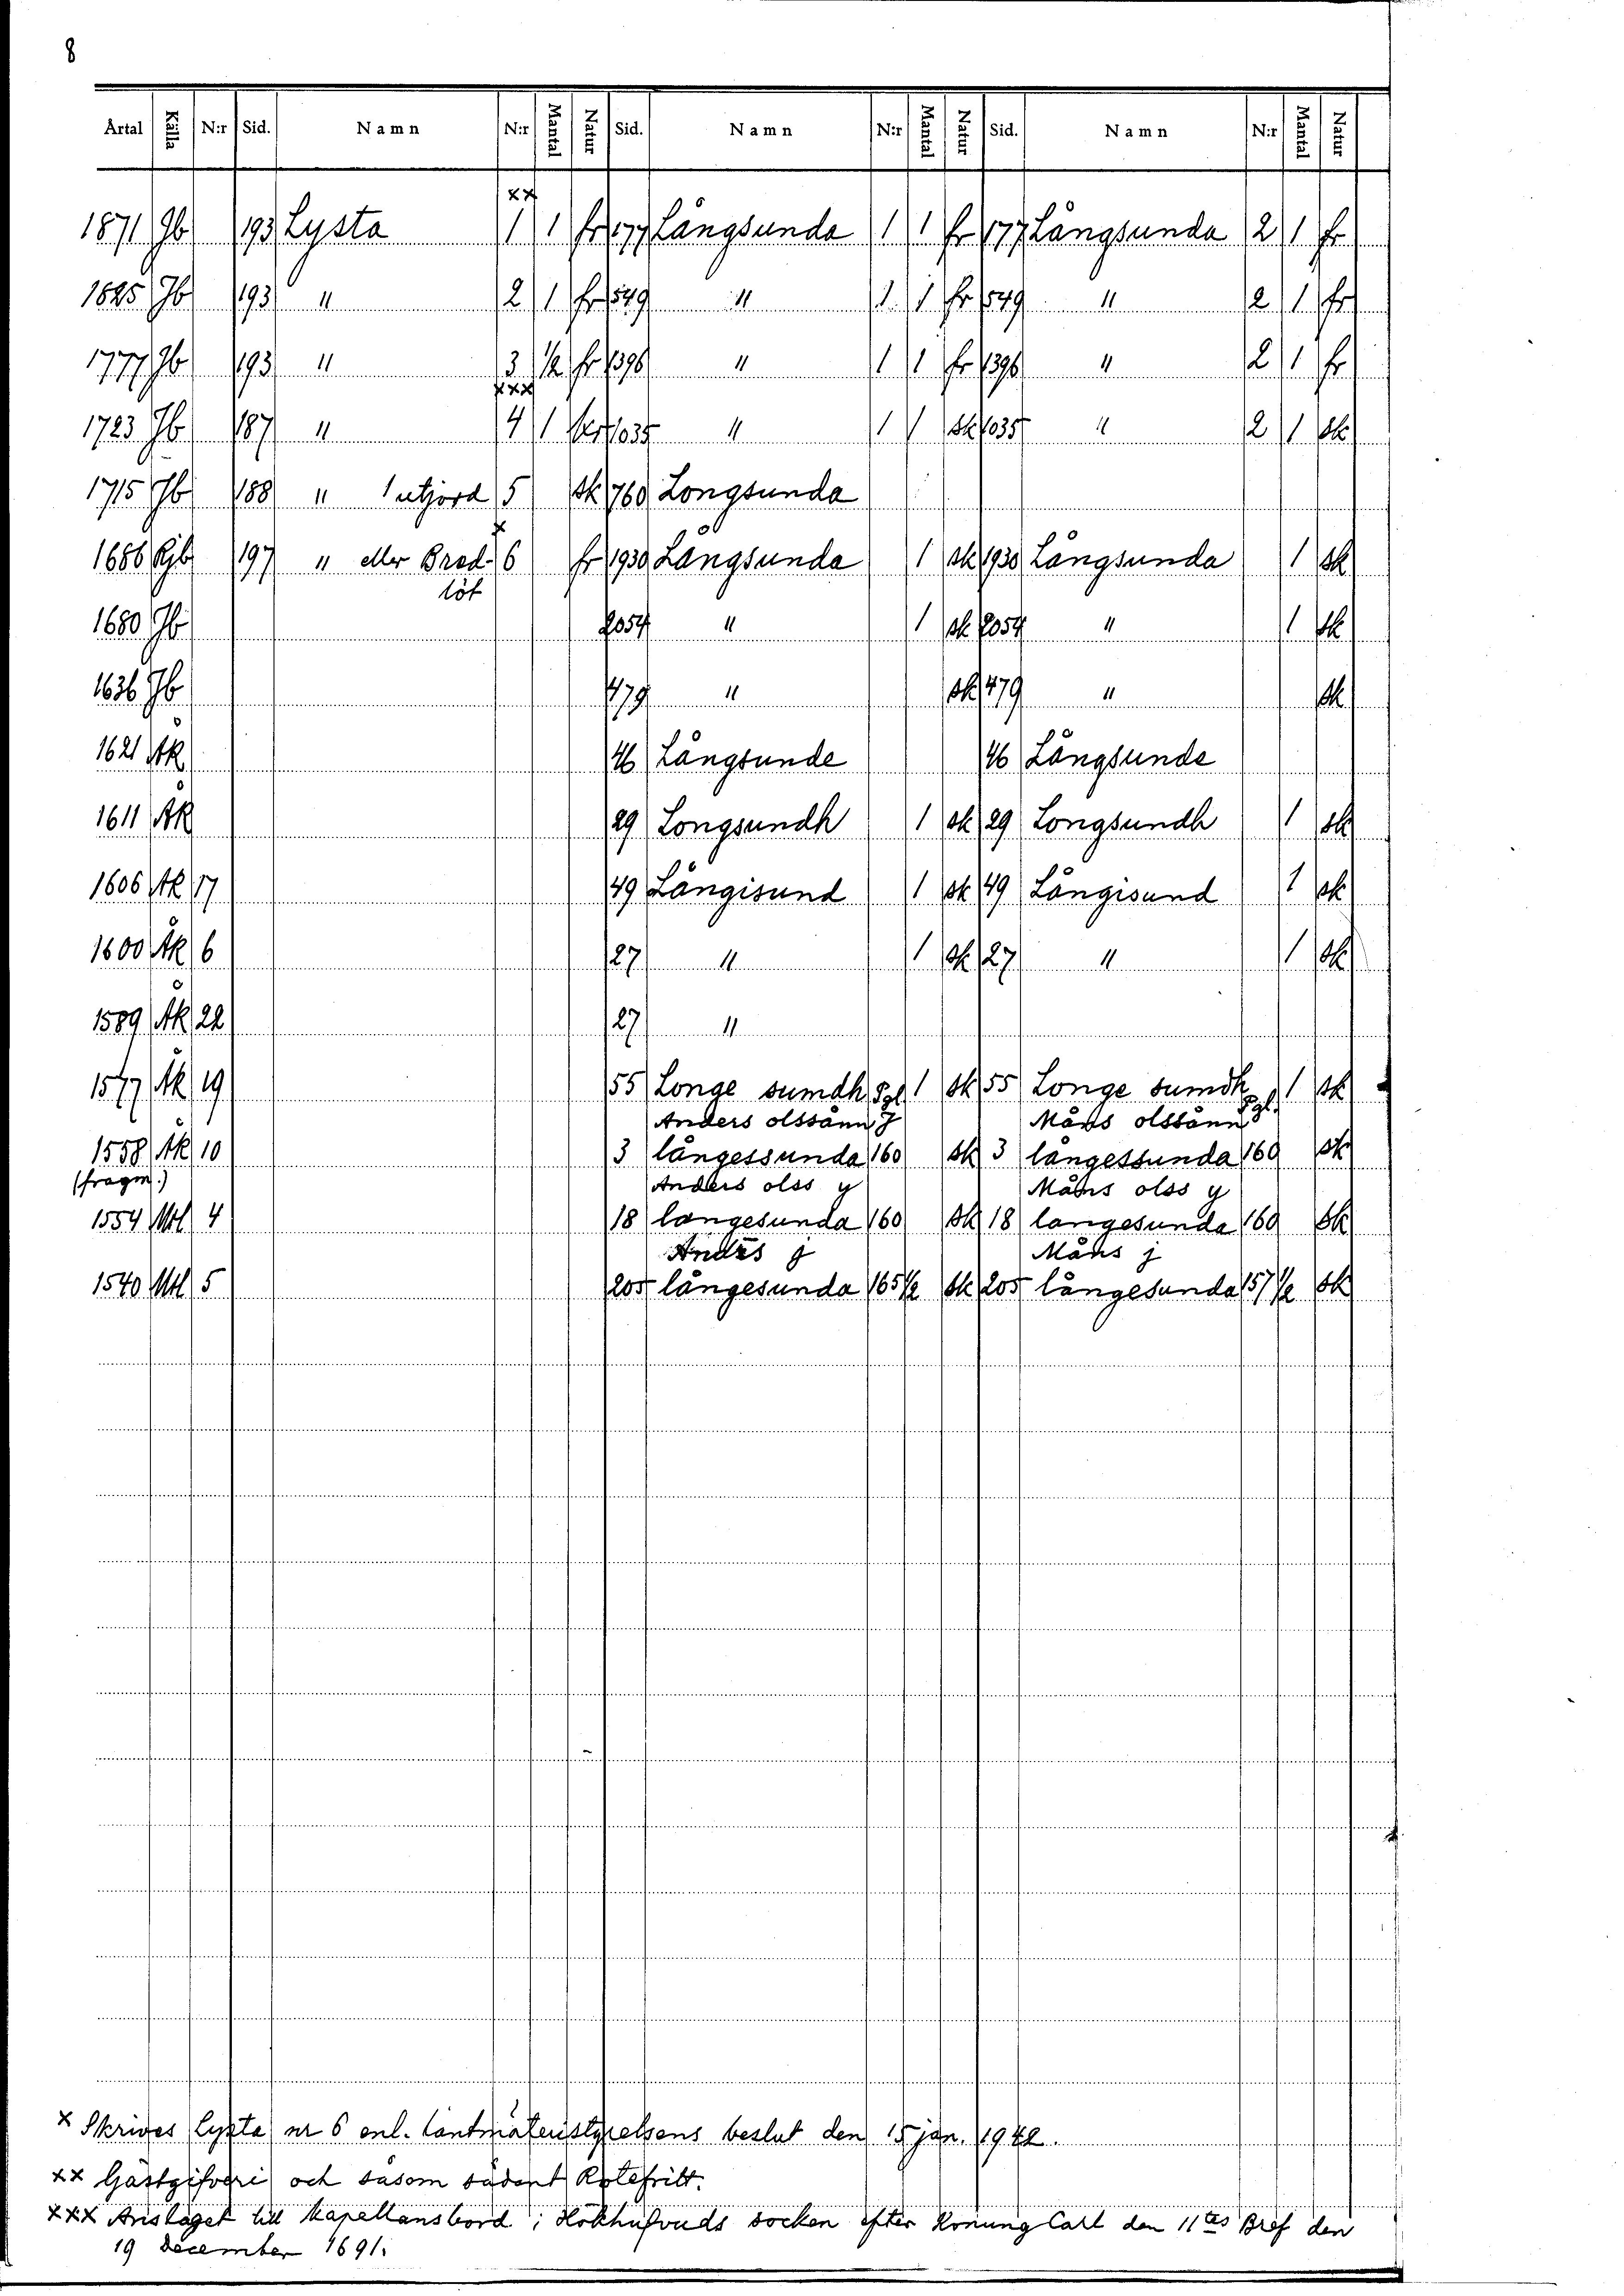 8
Årtal Källa N:r Sid. Namn N:r Mantal Natur Sid. Namn N:r Mantal Natur Sid. Namn N:r Mantal Natur
xx
1871 Jb 193 Lysta 1 1 fr 177 Långsunda 1 1 fr 177 Långsunda 2 1 fr
1825 Jb 193 " 2 1 fr 549 " 1 1 fr 549 " 2 1 fr
1777 Jb 193 " 3 1/2 fr 1396 " 1 1 fr 1396 " 2 1 fr
xxx
1723 Jb 187 " 4 1 1035 " 1 1 sk 1035 " 2 1 sk
1715 Jb 188 " 1 utjord 5 sk 760 Longsunda
x
1686 Rjb 197 " eller Brad- 6 fr 1930 Långsunda 1 sk 1930 Långsunda 1 sk
löt
1680 Jb 2054 " 1 sk 2054 " 1 sk
1636 Jb 479 " sk 479 " sk
1621 ÅK 46 Långsunde 46 Långsunde
1611 ÅK 29 Longsundh 1 sk 29 Longsundh 1 sk
1606 ÅK 17 49 Långisund 1 sk 49 Långisund 1 sk
1600 ÅK 6 27 " 1 sk 27 " 1 sk
1589 ÅK 22 27 "
1577 ÅK 19 55 Longe sumdh Pgl. 1 sk 55 Longe sumdh Pgl. 1 sk
Anders olssånn J Måns olssånn
1558 ÅK 10 3 långessunda 160 sk 3 långessunda 160 sk
(fragm.) Anders olss y Måns olss y
1554 Mtl 4 18 langesunda 160 sk 18 langesunda 160 sk
Andës j Måns j
1540 Mtl 5 205 långesunda 165 1/2 sk 205 långesunda 157 1/2 sk
x Skrives Lysta nr 6 enl. Lantmäteristyrelsens beslut den 15 jan. 1942.
xx Gästgifveri och såsom sådant Rotefritt.
xxx Anslaget till Kapellansbord i Hökhufvuds socken efter Konung Carl den 11tes Bref den
19 December 1691.